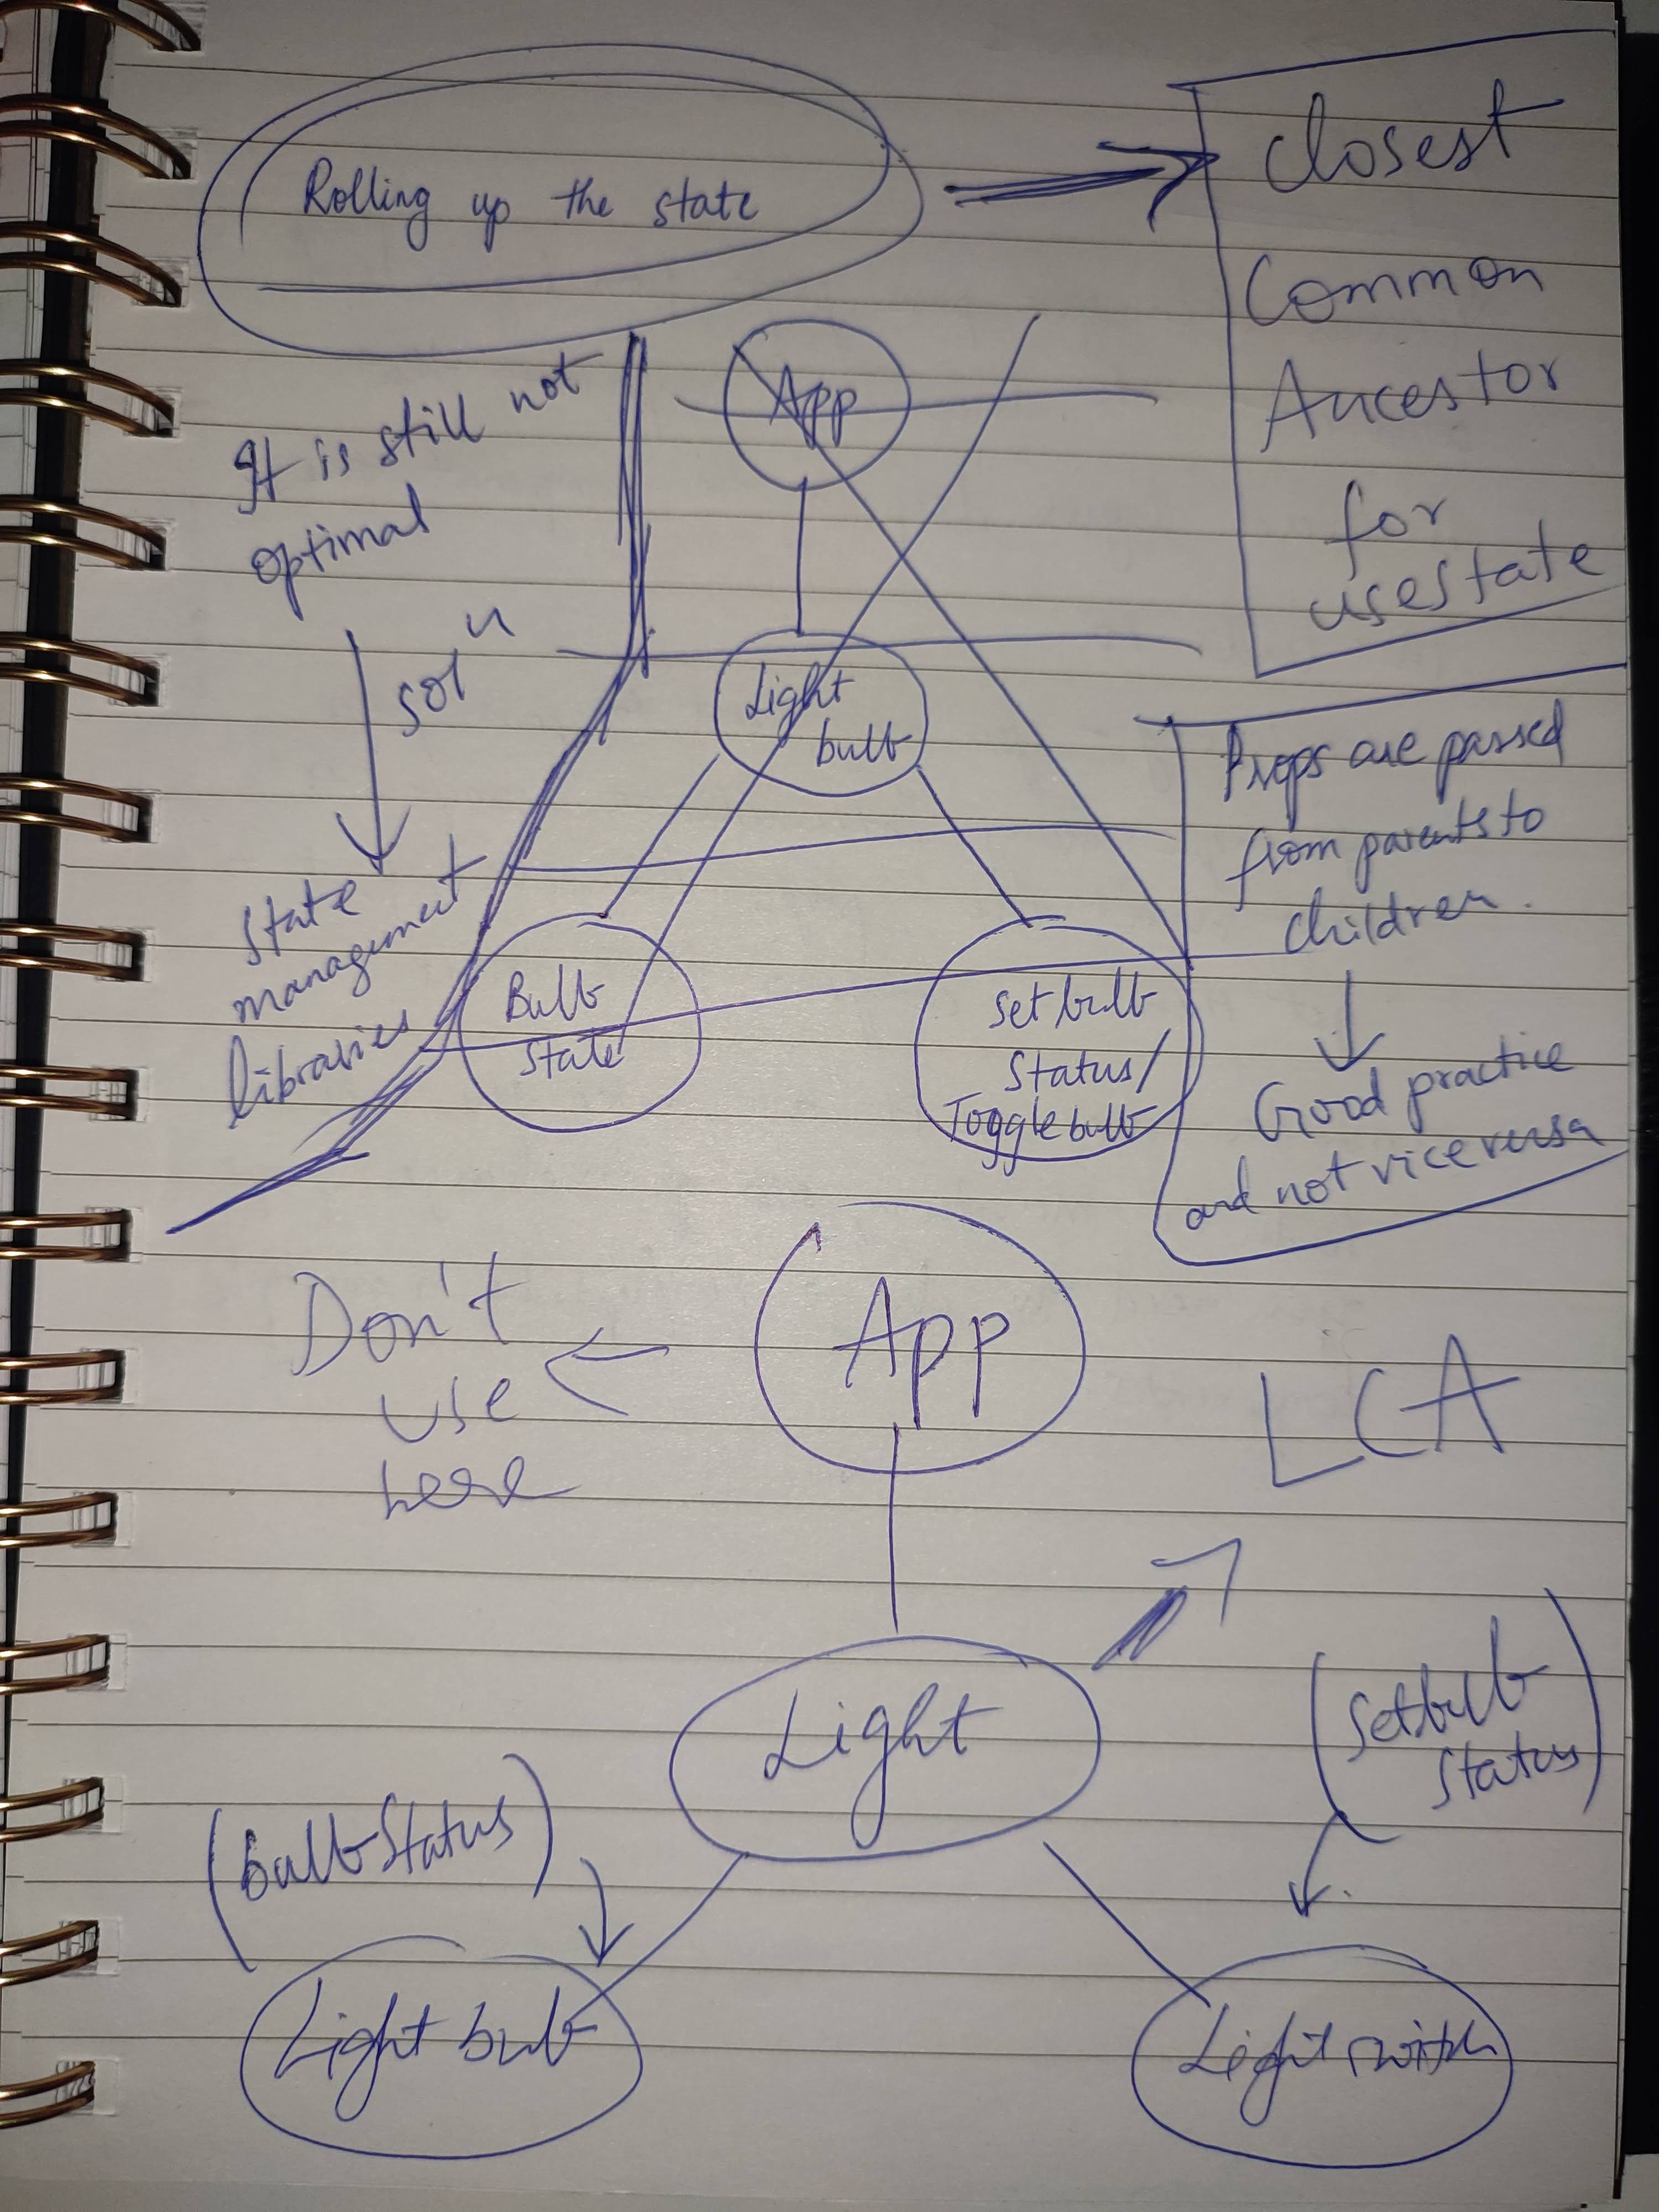 Rolling up the state
closest
Common
Ancestor
for
usestate
It is still not
optimal
solⁿ
State
management
libraries
App
Light
bulb
Bulb
State
Set bulb
Status/
Toggle bulb
Props are passed
from parents to
children.
Good practice
and not vice versa
Don't
use
here
App
LCA
Light
(bulbStatus)
(Setbulb
Status)
Light bulb
Light switch